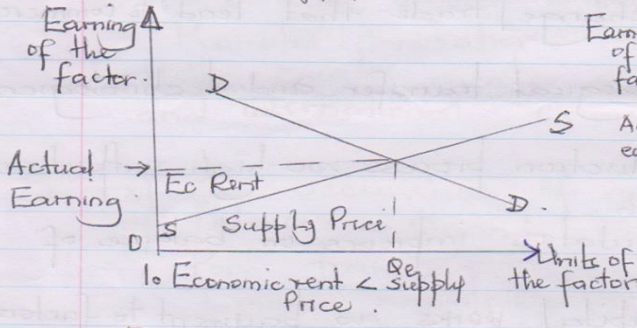 Earning
of the
factor.
D
S
Actual
Earning
Ec Rent
D.
S
Supply Price
0
Qe
Units of
the factor
1. Economic rent < supply
Price.
Earn
of
fa
A
ea